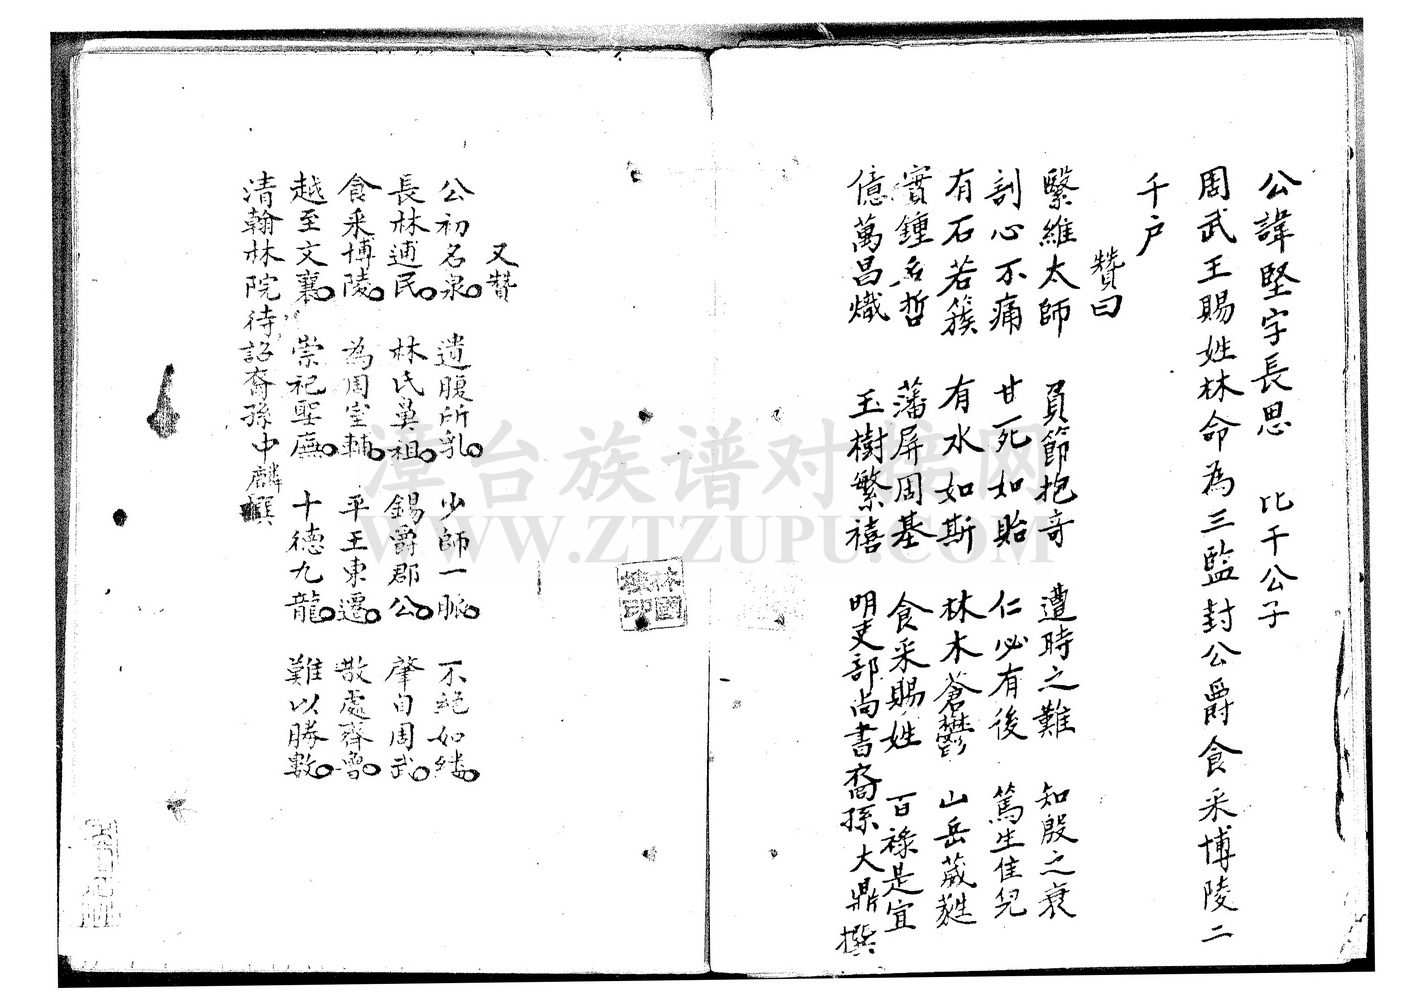 公諱堅字長思 比干公子
周武王賜姓林命為三監封公爵食采博陵二
千户
贊曰
繄維太師 負節抱奇 遭時之難 知殷之衰
剖心不痛 甘死如貽 仁必有後 篤生佳兒
有石若簇 有水如斯 林木蒼鬱 山岳葳蕤
實鍾名哲 藩屏周基 食采賜姓 百祿是宜
億萬昌熾 玉樹繁禧 明吏部尚書裔孫大鼎撰
又贊
公初名泉 遺腹所乳 少師一脈 不絕如縷
長林逋民 林氏奠祖 錫爵郡公 肇自周武
食采博陵 為周室輔 平王東遷 散處齊魯
越至文襄 崇祀聖廡 十德九龍 難以勝數
清翰林院待詔裔孫中麟撰
漳台族谱对接网
WWW.ZTZUPU.COM